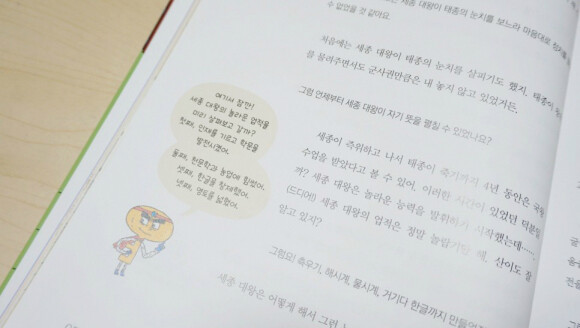 세종 대왕이 태종의 눈치를 보느라 마음대로 정치를
수 없었을 것 같아요.
처음에는 세종 대왕이 태종의 눈치를 살피기도 했지. 태종이
를 물려주면서도 군사권만큼은 내 놓지 않고 있었거든.
그럼 언제부터 세종 대왕이 자기 뜻을 펼칠 수 있었나요?
세종이 즉위하고 나서 태종이 죽기까지 4년 동안은 국왕
수업을 받았다고 볼 수 있어. 이러한 시간이 있었던 덕분일
까? 세종 대왕은 놀라운 능력을 발휘하기 시작했는데……
(드디어) 세종 대왕의 업적은 정말 놀랍기만 해. 산이도 잘
알고 있지?
그럼요! 측우기, 해시계, 물시계, 거기다 한글까지 만들었
세종 대왕은 어떻게 해서 그런
여기서 잠깐!
세종 대왕의 놀라운 업적을
미리 살펴보고 갈까?
첫째, 인재를 기르고 학문을
발전시켰어.
둘째, 천문학과 농업에 힘썼어.
셋째, 한글을 창제했어.
넷째, 영토를 넓혔어.